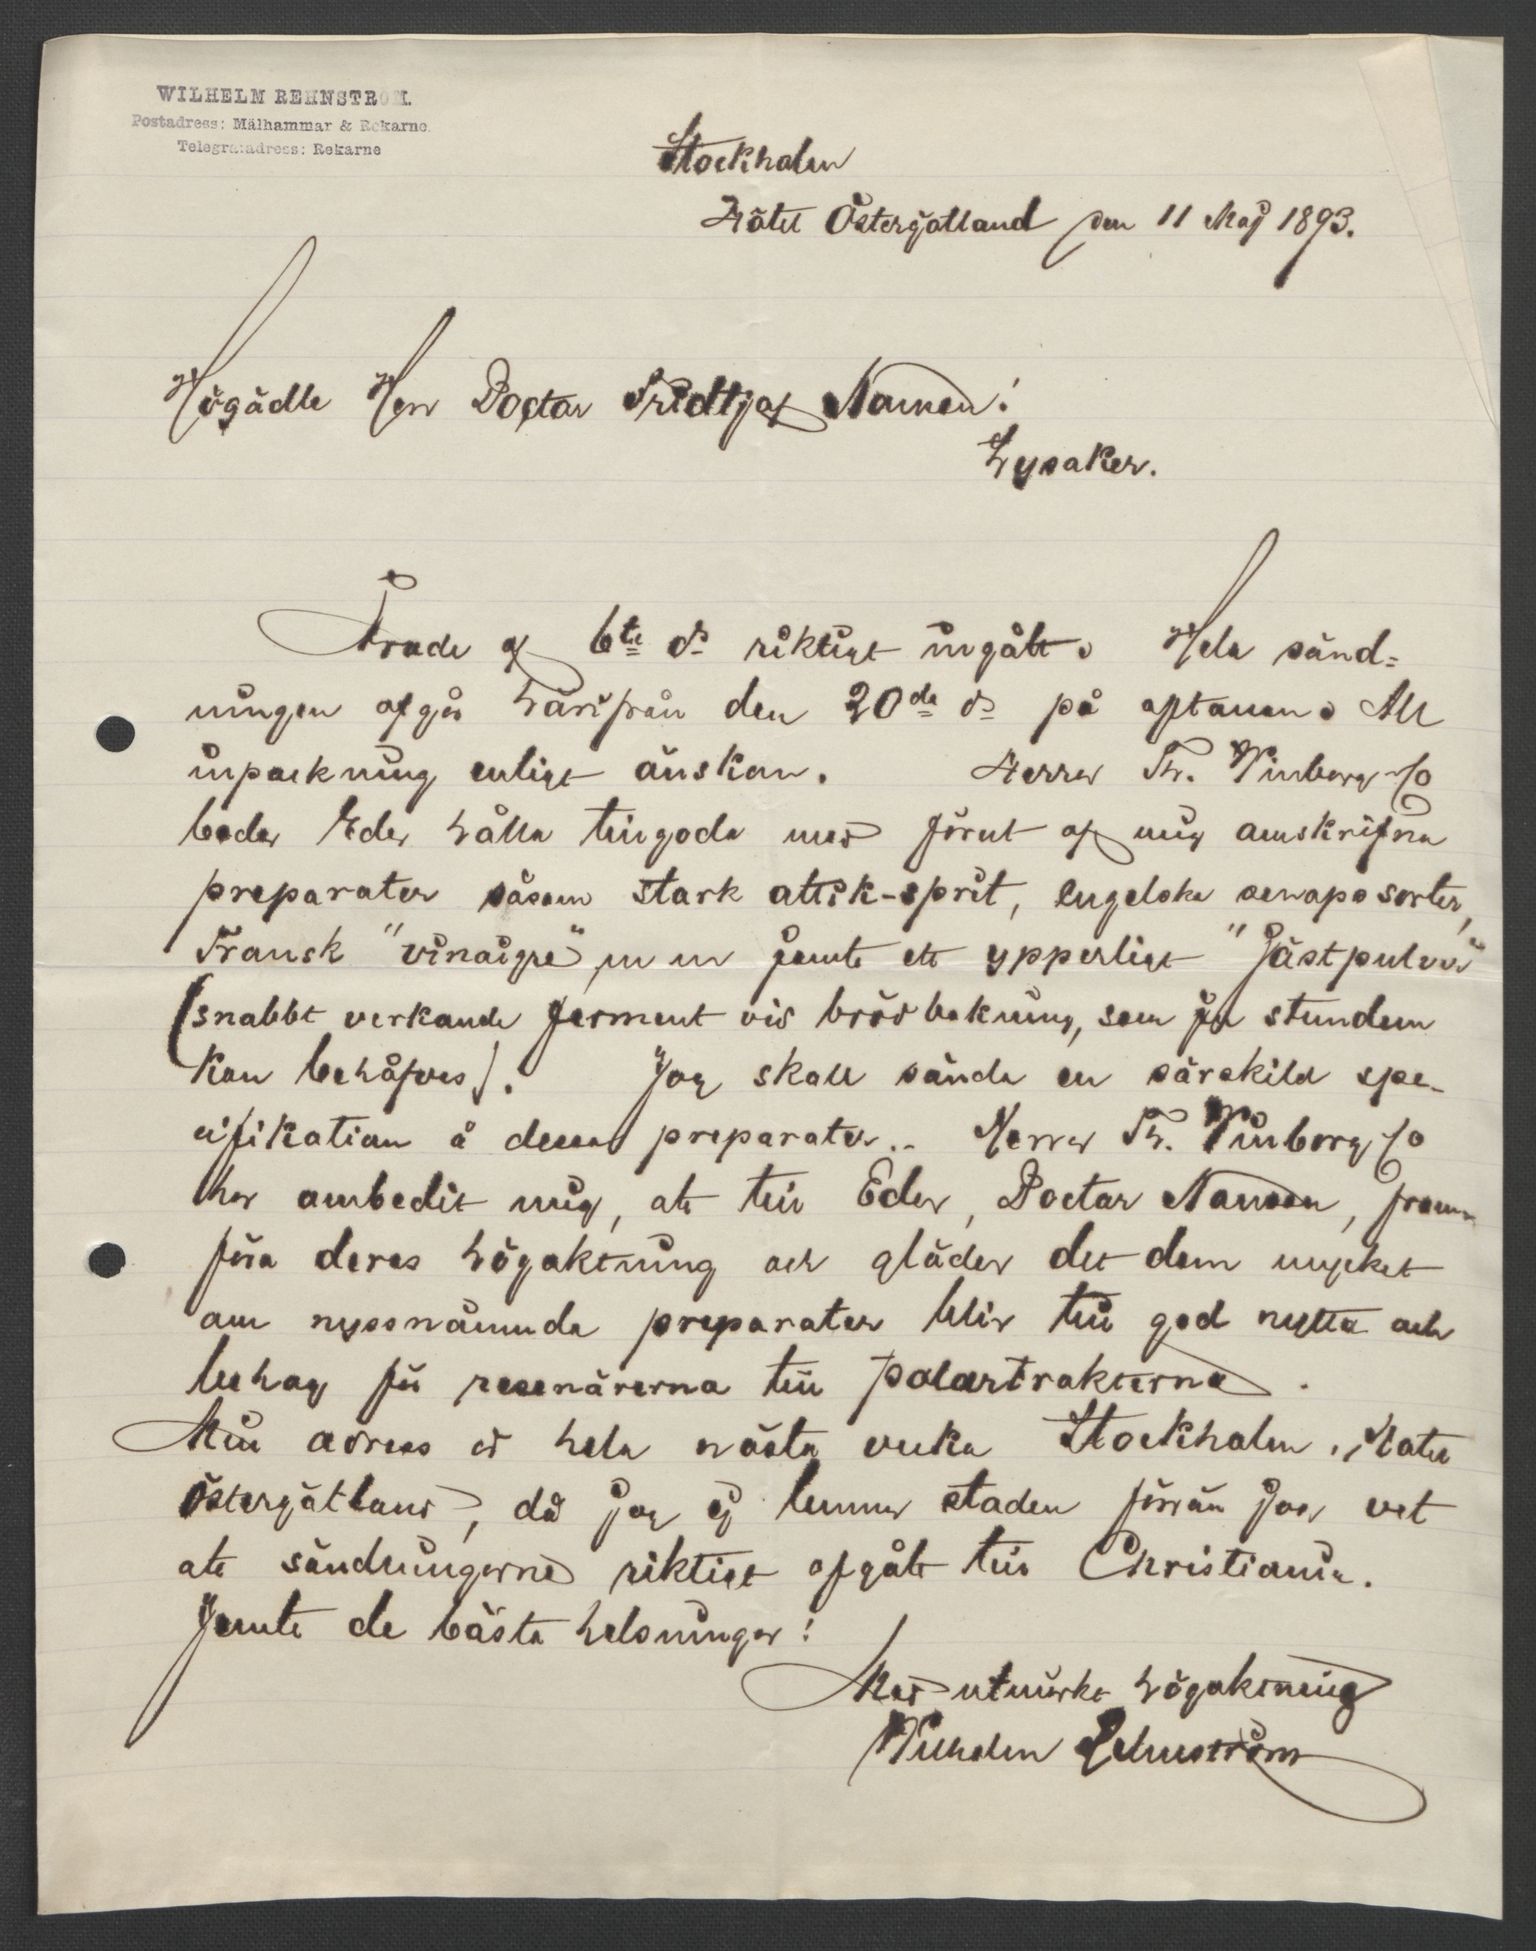 WILHELM REHNSTROM.
Postadress: Mälhammar & Rekarne.
Telegramadress: Rekarne
Stockholm
Hôtel Östergötland den 11 Maj 1893.
Högädle Herr Doctor Fridtjof Nansen!
Lysaker.
Ärade af 6te ds riktigt ingått. Hela sänd-
ningen afgår härifrån den 20de ds på aftonen. All
inpackning enligt önskan. Herrer Th. Winborg & Co
beder Eder hålla tillgodo med förut af mig omskrifna
preparater såsom stark attik-sprit, engelska senapssorter,
Fransk "vinaigre", m m jemte ett ypperligt "Jästpulver"
(snabbt verkande ferment vid brödbakning, som ju stundom
kan behöfves). Jag skall sända en särskild spe-
cifikation å dessa preparater.. Herrer Th. Winborg & Co
har ombedit mig, att till Eder, Doctor Nansen, fram-
föra deras högaktning och gläder det dem mycket
om nyssnämnda preparater blir till god nytta och
behag för resenärerna till polartrakterna.
Min adress är hela nästa vecka Stockholm, Hotel
Östergötland, då jag ej lemnar staden förrän jag vet
att sändningarne riktigt afgått till Christiania.
Jemte de bästa helsningar!
Med utmärkt högaktning
Wilhelm Rehnström